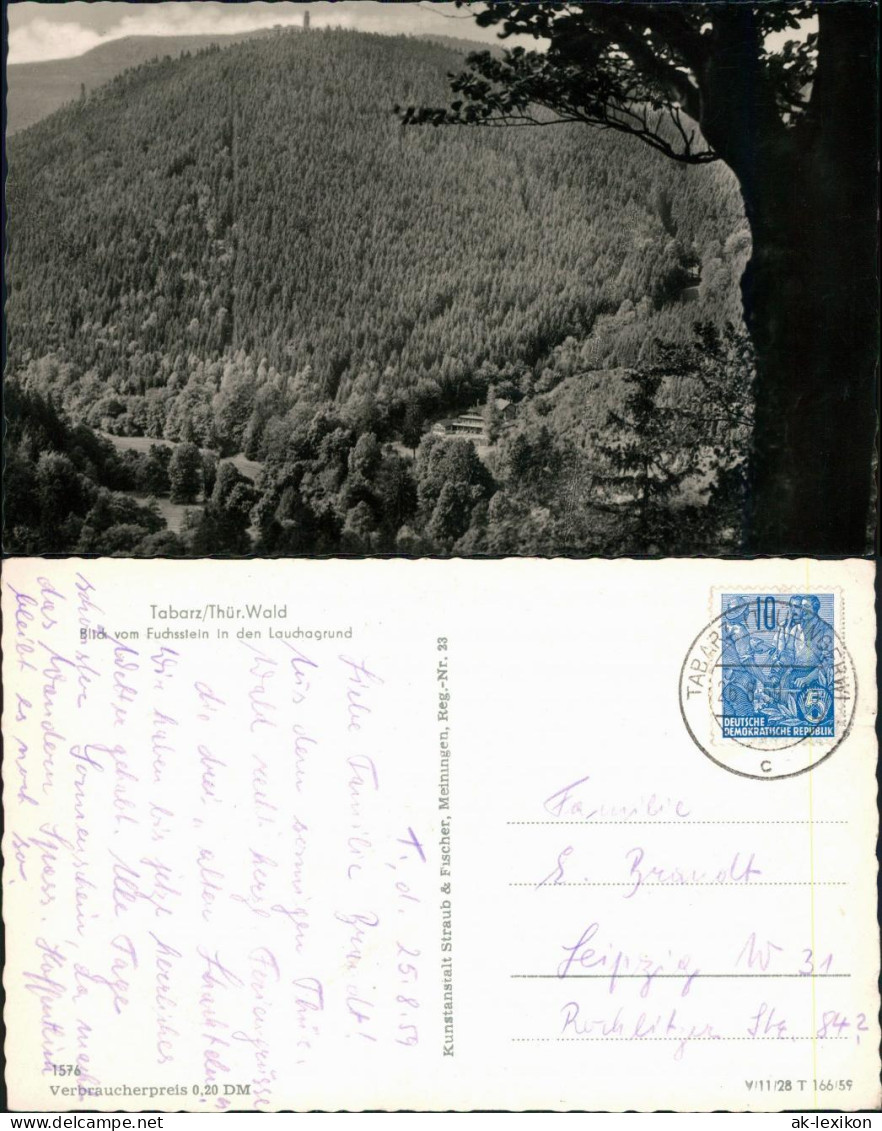 Tabarz/Thür. Wald
Blick vom Fuchsstein in den Lauchagrund
T., d. 25.8.59
Liebe Familie Brandt!
Aus dem sonnigen Thür.
Wald recht herzl. Feriengrüsse
die drei „alten Schachteln"
Wir haben bis jetzt herrliches
Wetter gehabt. Alle Tage
schönster Sonnenschein, da macht
das Wandern Spass. Hoffentlich
bleibt es noch so.
1576
Verbraucherpreis 0,20 DM
Kunstanstalt Straub & Fischer, Meiningen, Reg.-Nr. 23
10
5
DEUTSCHE
DEMOKRATISCHE REPUBLIK
TABARZ (THÜRINGERW)
c
Familie
E. Brandt
Leipzig W 31
Rochlitzer Str. 84
V/11/28 T 166/59
oldthing.de
ak-lexikon.de